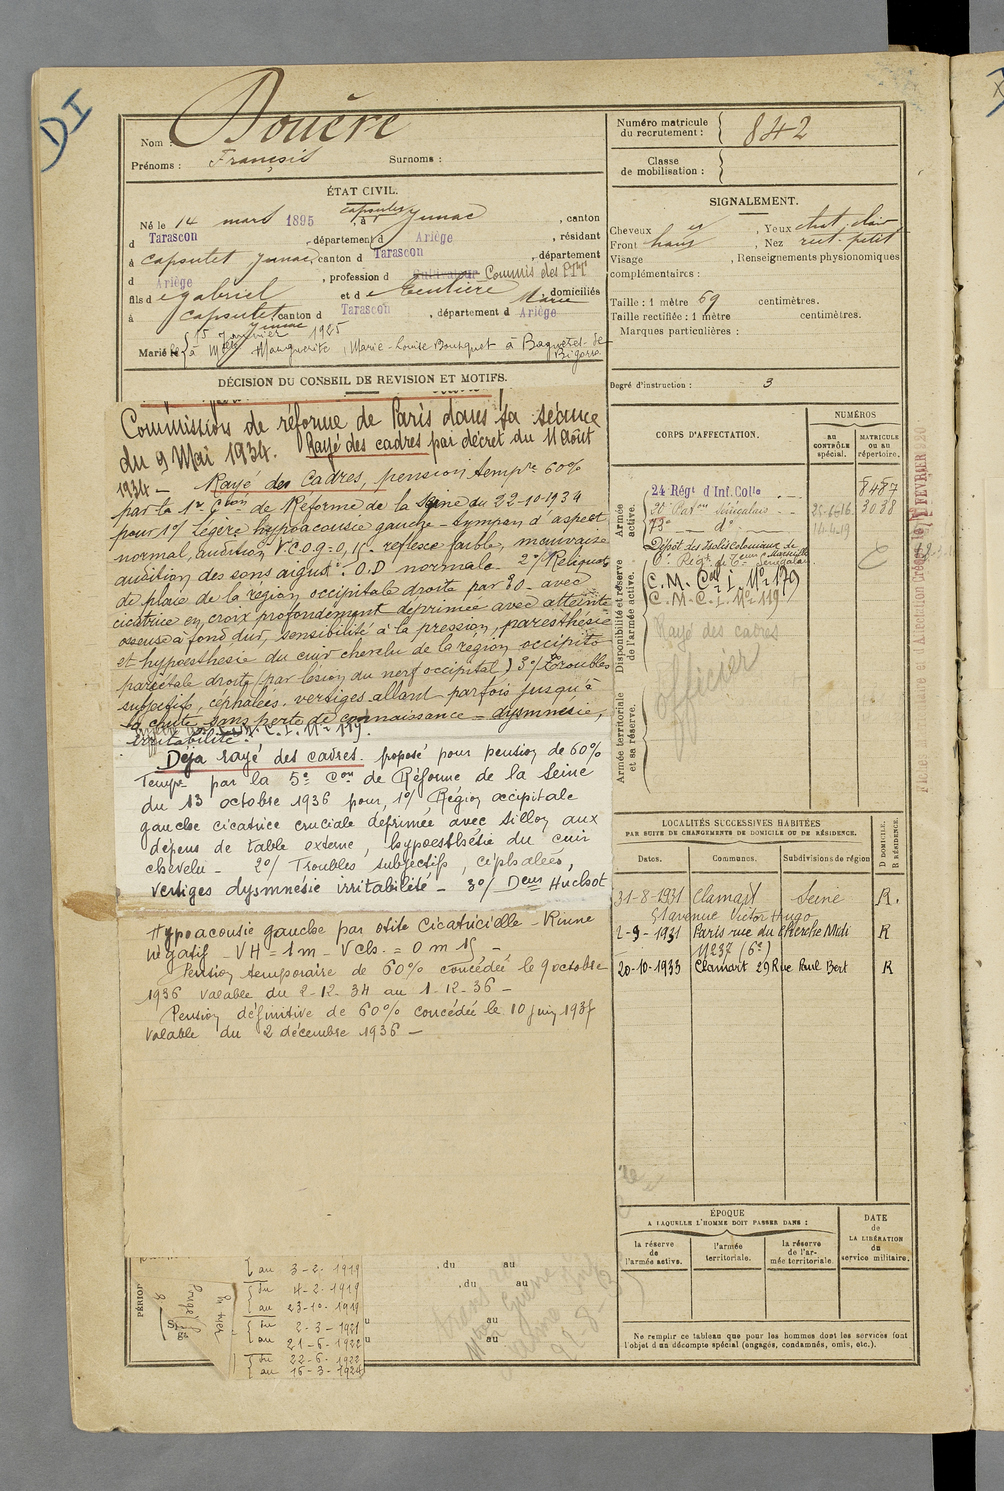 DI
Nom : Douère
Prénoms : François Surnoms :
ÉTAT CIVIL.
Né le 14 mars 1895, à Capoulet Junac, canton
d Tarascon, département d Ariège, résidant
à Capoulet Junac, canton d Tarascon, département
d Ariège, profession d Cultivateur Commis des PTT
fils de Gabriel et de Teulière Marie domiciliés
à Capoulet Junac canton d Tarascon, département d Ariège
Marié le 15 Janvier 1925
à Mlle Marguerite, Marie-Louise Bousquet à Bagnères-de-Bigorre
DÉCISION DU CONSEIL DE REVISION ET MOTIFS.
Commission de réforme de Paris dans sa séance
du 9 Mai 1934. Rayé des cadres par décret du 11 Août
1934 — Rayé des Cadres, pension tempre 60%
par la 1re Cion de Réforme de la Seine du 22-10-1934
pour 1°/ Légère hypoacousie gauche - tympan d'aspect
normal, audition V.C.O.g=0, 1c - reflexe faible, mauvaise
audition des sons aigus. O.D normale - 2°/ Reliquats
de plaie de la région occipitale droite par E.O - avec
cicatrice en croix profondément déprimée avec atteinte
osseuse à fond dur, sensibilité à la pression, paresthésie
et hypoesthésie du cuir chevelu de la région occipito
pariétale droite (par lésion du nerf occipital) 3°/ Troubles
subjectifs, céphalées, vertiges allant parfois jusqu'à
la chute, sans perte de connaissance - dysmnésie,
irritabilité.
C. M. C. I. N° 119
Déja rayé des cadres. proposé pour pension de 60%
Tempre par la 5e Con de Réforme de la Seine
du 13 octobre 1936 pour, 1°/ Région occipitale
gauche cicatrice cruciale déprimée avec sillon aux
dépens de table externe, hypoesthésie du cuir
chevelu - 2°/ Troubles subjectifs, céphalées,
vertiges dysmnésie irritabilité - 3°/ Deur Huchot
Hypoacousie gauche par otite cicatricielle - Rinne
négatif - VH = 1m - V ch. = 0 m 15 -
Pension temporaire de 60% concédée le 9 octobre
1936 valable du 2-12-34 au 1-12-36 -
Pension définitive de 60% concédée le 10 juin 1937
valable du 2 décembre 1936 -
PÉRIOD
au 3-2-1919
du 4-2-1919
au 23-10-1919
du 2-3-1921
au 21-6-1922
du 22-6-1922
au 16-3-1924
du au
du au
au
au
Numéro matricule du recrutement : 842
Classe de mobilisation :
SIGNALEMENT.
Cheveux, Yeux chat. clair
Front haut, Nez rect. petit
Visage, Renseignements physionomiques
complémentaires :
Taille : 1 mètre 69 centimètres.
Taille rectifiée : 1 mètre centimètres.
Marques particulières :
Degré d'instruction : 3
CORPS D'AFFECTATION.
NUMÉROS
AU CONTRÔLE spécial.
MATRICULE OU AU répertoire.
Armée active.
24 Régt d'Inf. Colle 8487
30e Baton Sénégalais 25-6-16 3038
73e — do 14-4-19
Dépôt des Isolés Coloniaux de Marseille
Régt de Teurs Sénégalais
Disponibilité et réserve de l'armée active.
C. M. Col. I. N° 179
C. M. C. I. N° 119
Rayé des cadres
officier
Armée territoriale et sa réserve.
FÉVRIER 1920
LOCALITÉS SUCCESSIVES HABITÉES
PAR SUITE DE CHANGEMENTS DE DOMICILE OU DE RÉSIDENCE.
Dates. Communes. Subdivisions de région D DOMICILE. R RÉSIDENCE.
31-8-1931 Clamart Seine R.
51 avenue Victor Hugo
2-9-1931 Paris rue du Cherche Midi R
N° 37 (6e)
20-10-1933 Clamart 29 Rue Paul Bert R
ÉPOQUE
A LAQUELLE L'HOMME DOIT PASSER DANS :
la réserve de l'armée active.
l'armée territoriale.
la réserve de l'armée territoriale.
DATE de LA LIBÉRATION du service militaire.
Ne remplir ce tableau que pour les hommes dont les services font
l'objet d'un décompte spécial (engagés, condamnés, omis, etc.).